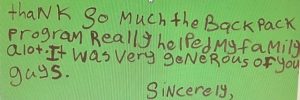 thaNK So Much the BacK Pack
Program Really helped My faMily
alot. It was Very geNeRous of you
guys.
Sincerely,